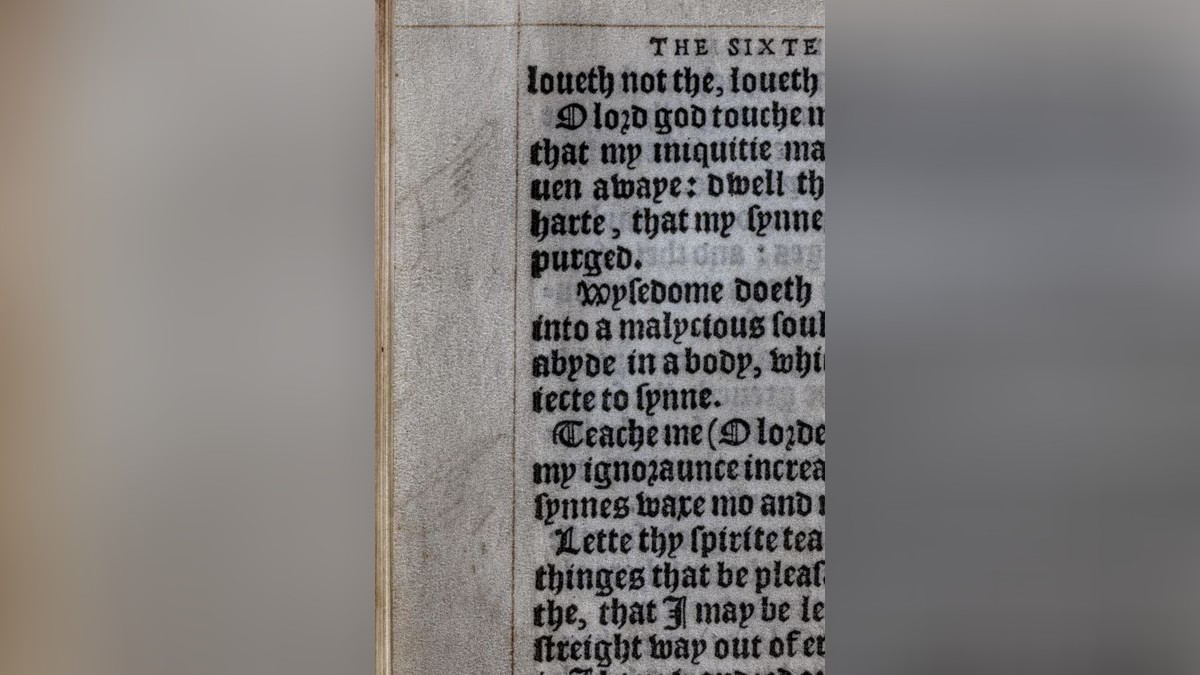 THE SIXTE
loueth not the, loueth
O lord god touche
that my iniquitie ma
uen awaye: dwell th
harte, that my ſynne
purged.
Wyſedome doeth
into a malycious ſoul
abyde in a body, whi
iecte to ſynne.
Teache me (O lorde
my ignoraunce increa
ſynnes waxe mo and
Lette thy ſpirite tea
thinges that be pleaſ
the, that I may be le
ſtreight way out of er